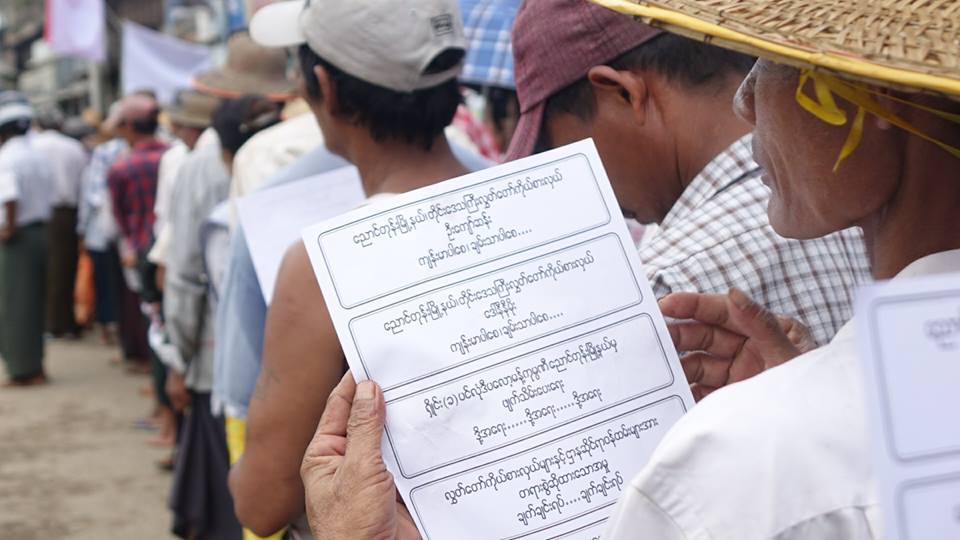 ညောင်တုန်းမြို့နယ်၊ တိုင်းဒေသကြီးလွှတ်တော်ကိုယ်စားလှယ်
ဦးကျော်ဆန်း
ကျန်းမာပါစေ၊ ချမ်းသာပါစေ....
ညောင်တုန်းမြို့နယ်၊ တိုင်းဒေသကြီးလွှတ်တော်ကိုယ်စားလှယ်
ဒေါ်နီနီမိုး
ကျန်းမာပါစေ၊ ချမ်းသာပါစေ....
ရှိုင်း(၁) ပင်လုံဒီပလော့မန့်ကုမ္ပဏီညောင်တုန်းမြို့နယ်မှ
ဖျက်သိမ်းပေးရေး
ဒို့အရေး......ဒို့အရေး.....ဒို့အရေး
လွှတ်တော်ကိုယ်စားလှယ်များနှင့်ဌာနဆိုင်ရာဝန်ထမ်းများအား
တရားစွဲဆိုထားသောအမှု
ချက်ချင်းရပ်....ချက်ချင်းရပ်